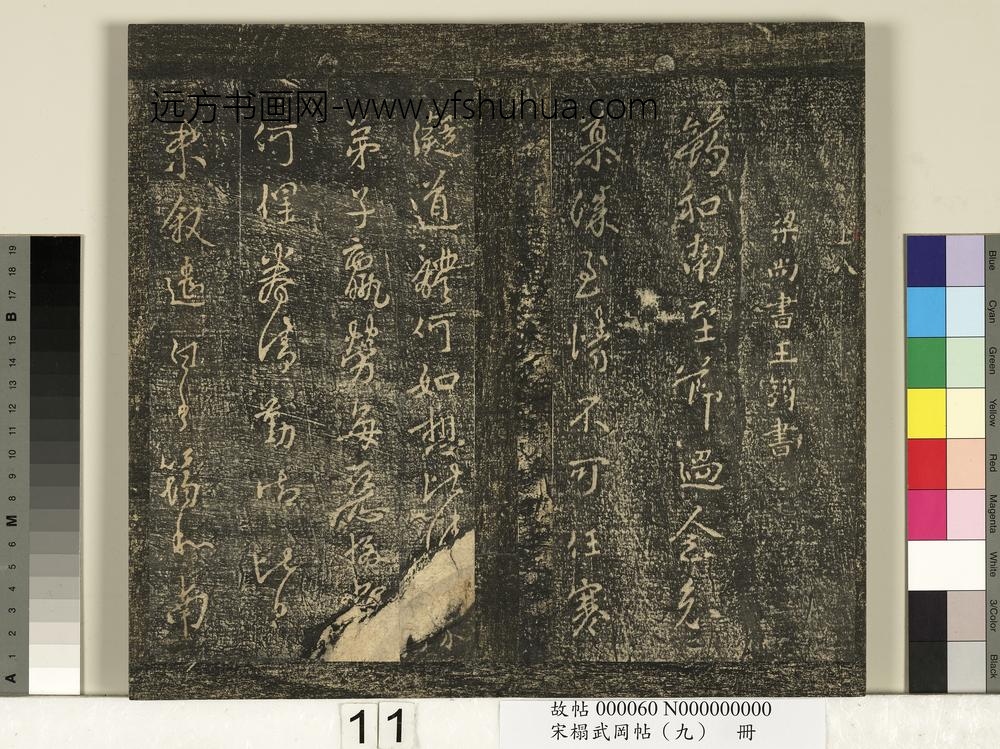 远方书画网-www.yfshuhua.com
梁尚書王筠書
筠和南至節過念
慕深至情不可任寒
凝道體何如想比
弟子羸勞每惡
何
未叙遣白
筠和南
11
故帖 000060 N000000000
宋榻武岡帖（九） 冊
A 1 2 3 4 5 6 M 8 9 10 11 12 13 14 15 B 17 18 19
Blue
Cyan
Green
Yellow
Red
Magenta
White
3/Color
Black